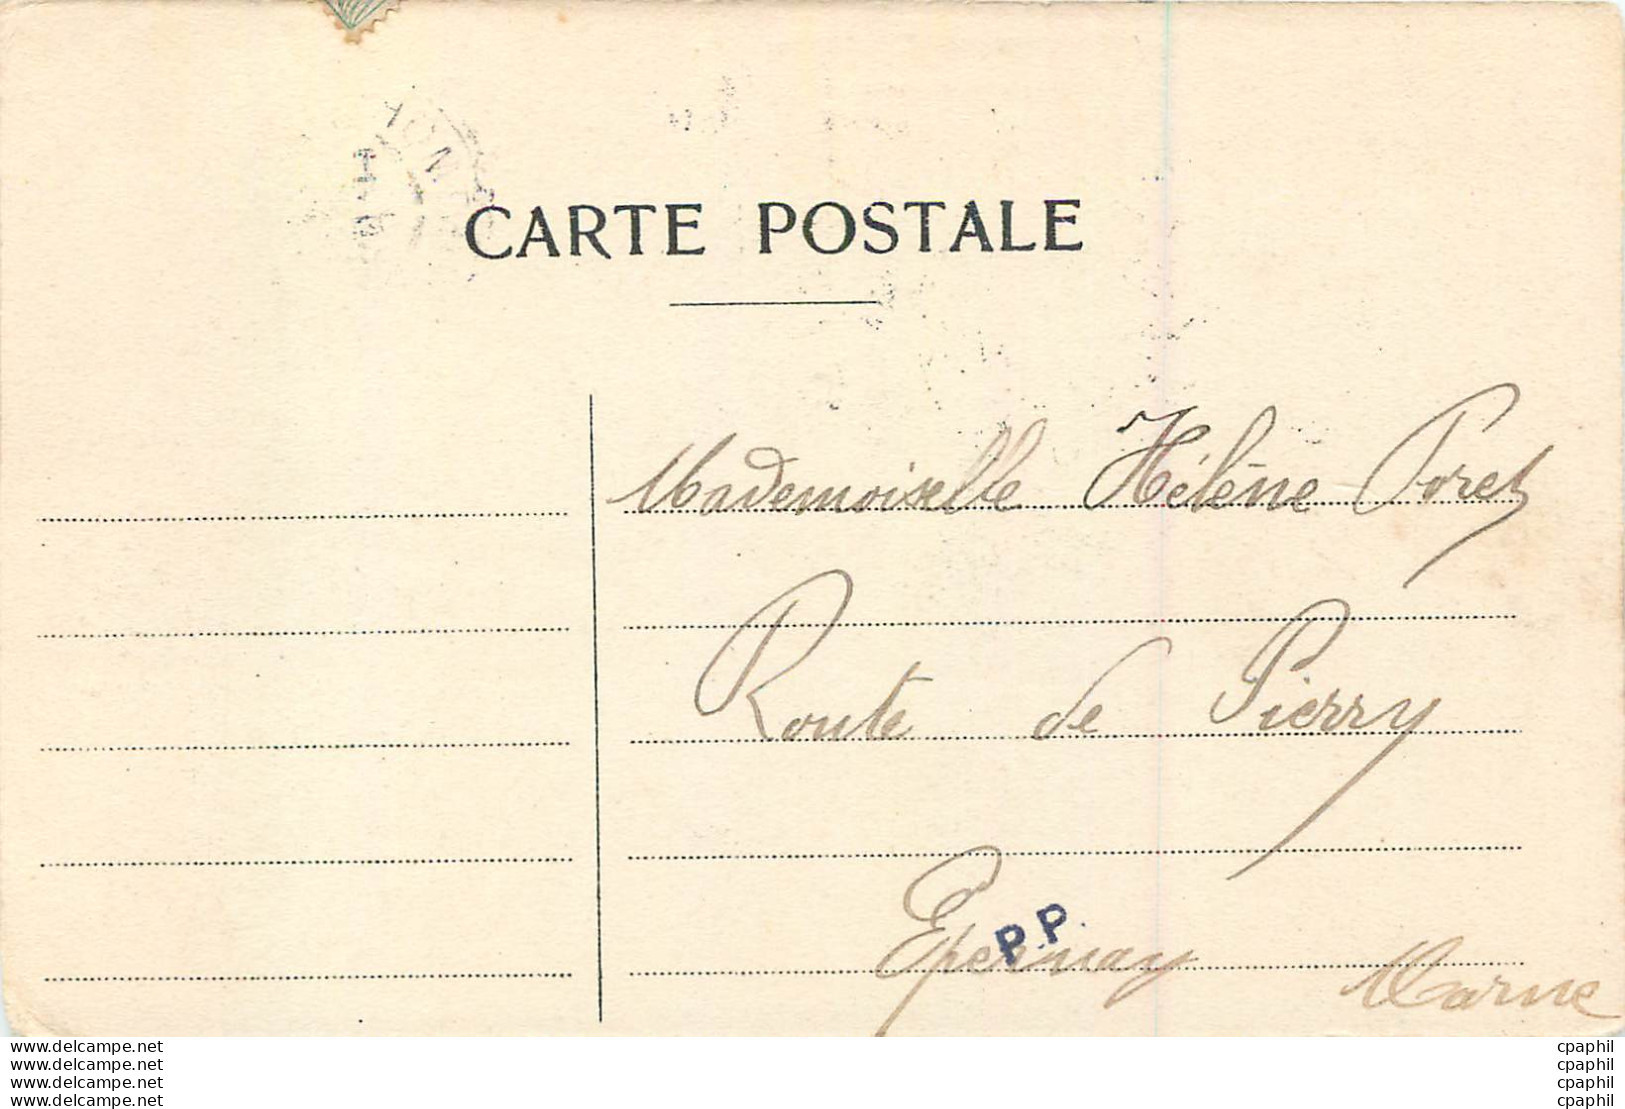 CARTE POSTALE
Mademoiselle Hélène Poret
Route de Pierry
P.P.
Epernay Marne
www.delcampe.net cpaphil
www.delcampe.net cpaphil
www.delcampe.net cpaphil
www.delcampe.net cpaphil